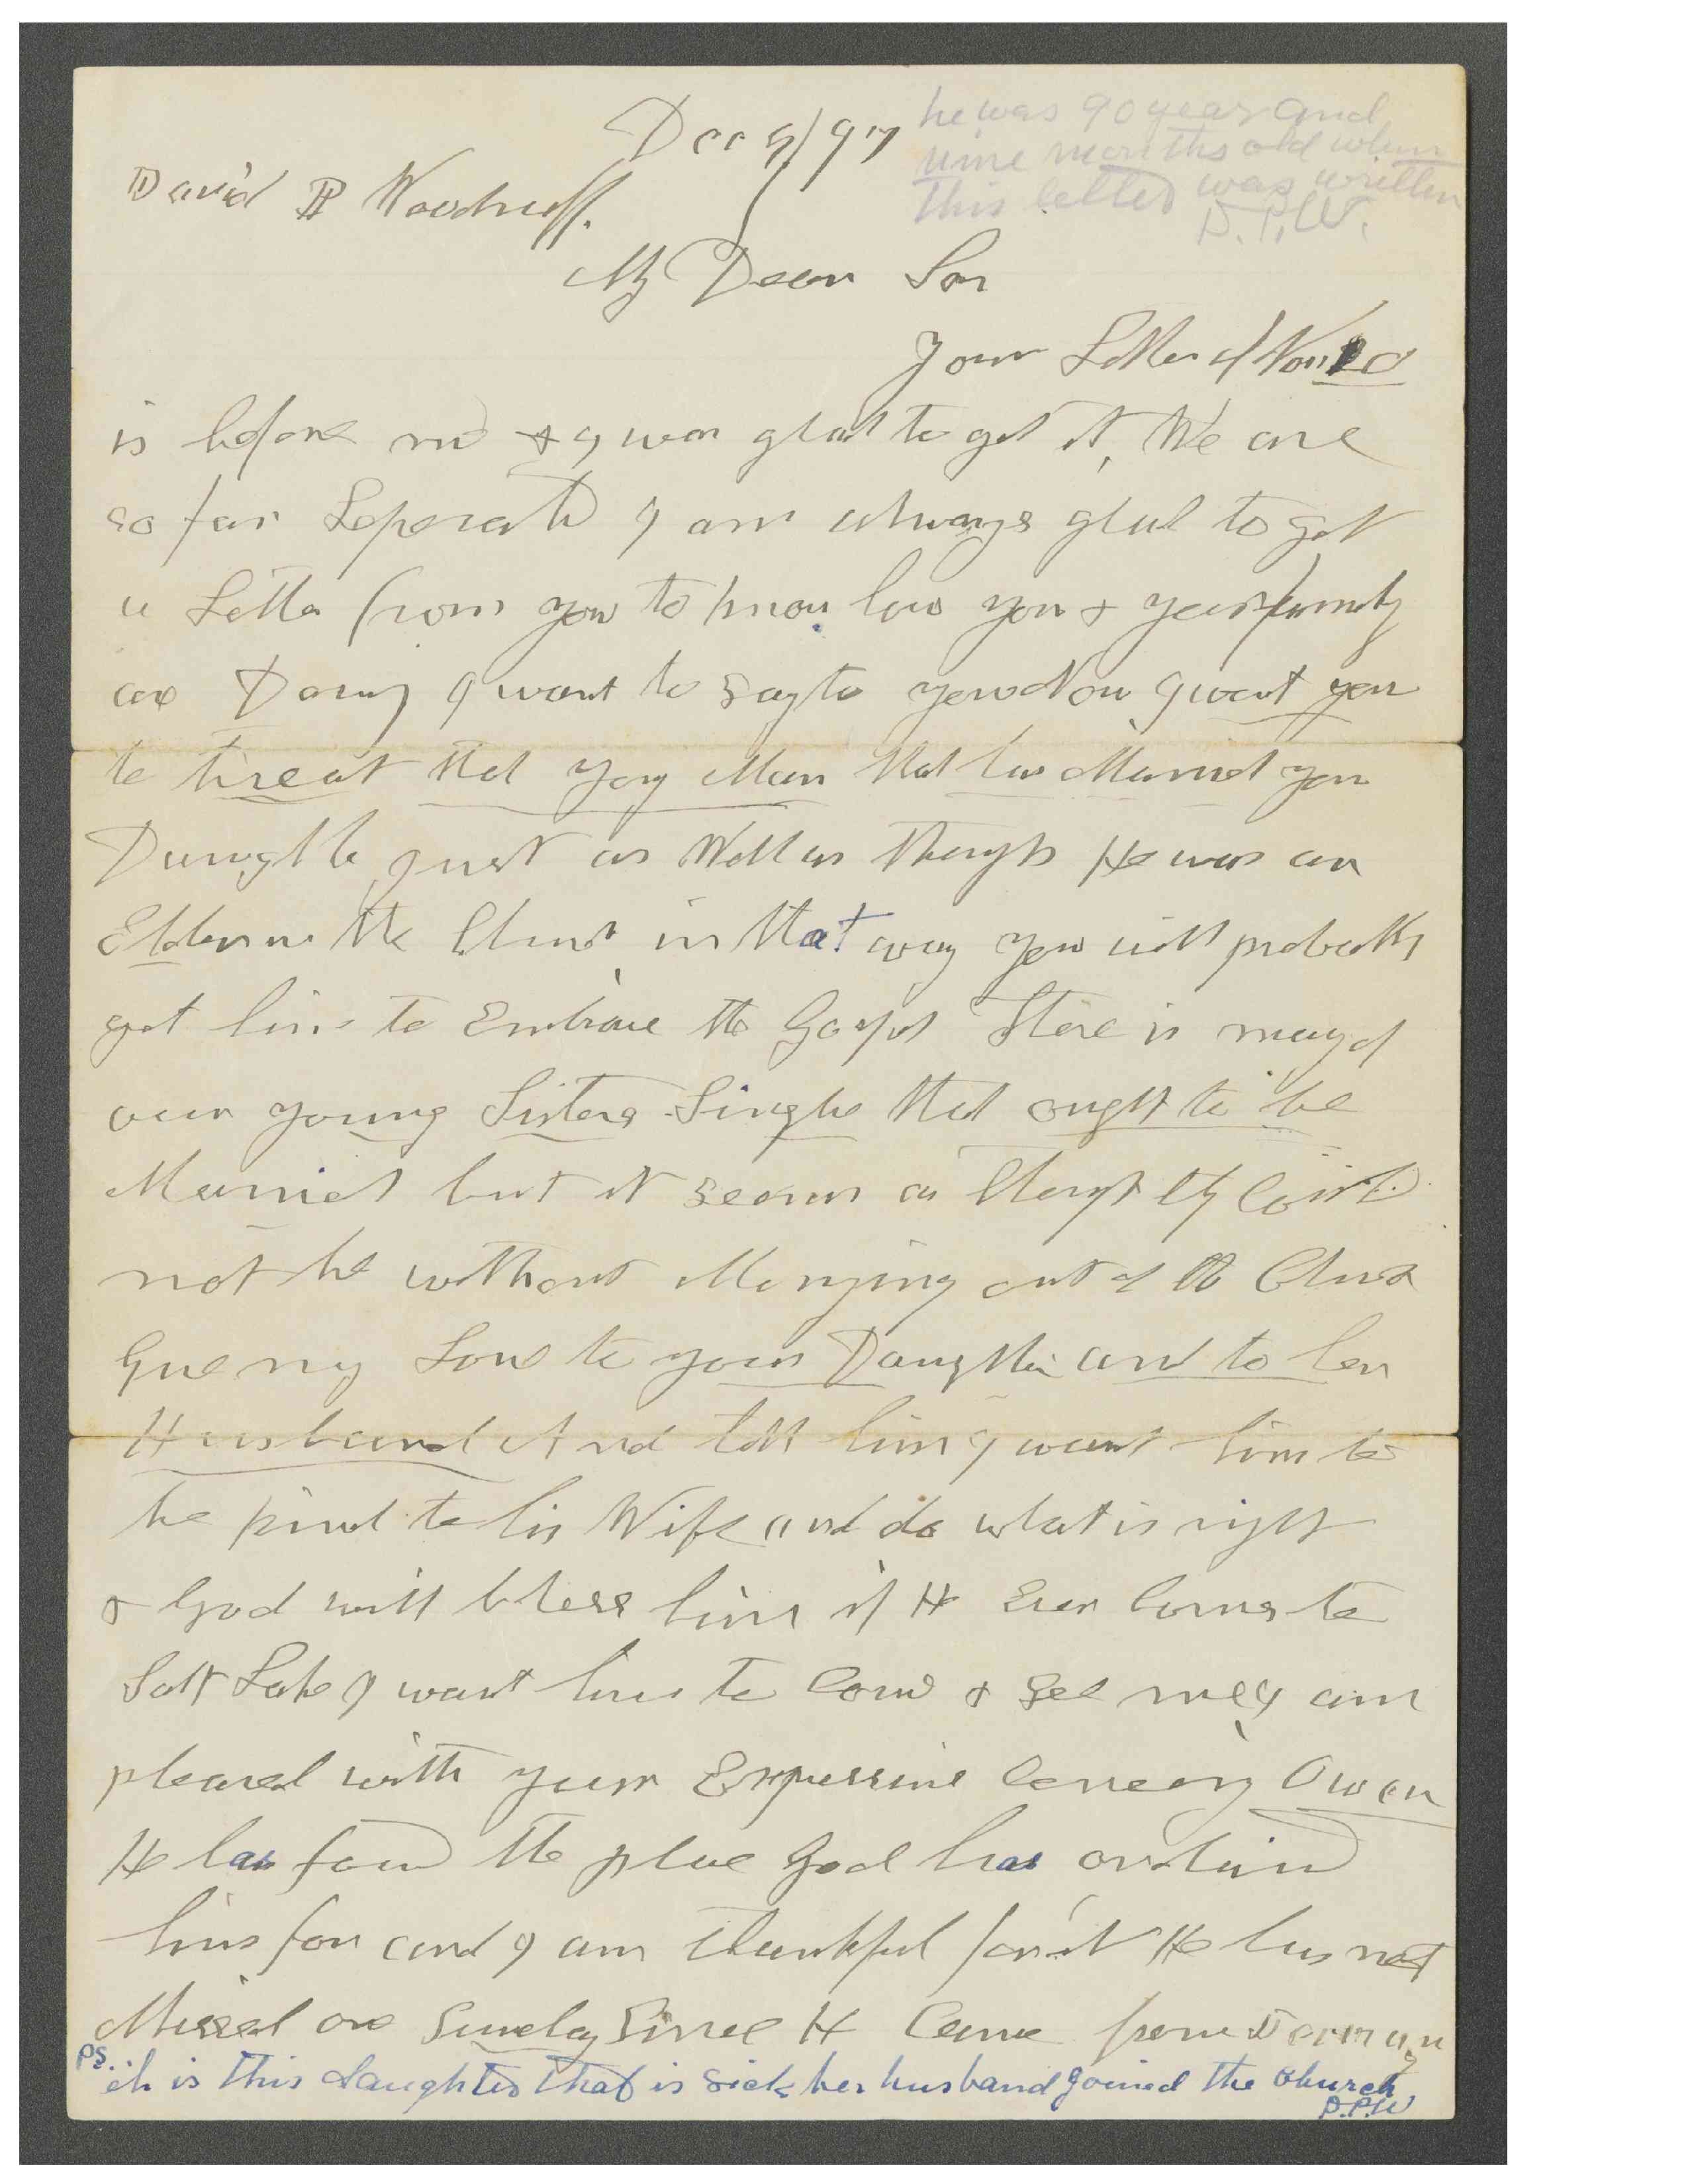 Dec 9/97
he was 90 year and
nine months old when
this letter was written
D.P.W.
David P Woodruff.
My Dear Son
Your Letter of Nov
is before me & I was glad to get it, We are
so far Seperated I am always glad to get
a Letter from you to know how you & your family
are Doing I want to say to you Now I want you
to treat that yong Man that has Married you
Daughter just as Well as though He was an
Elder in the Church in that way you will probably
get him to Embrace the Gospel There is many of
our young Sisters Single that ought to be
Married but it seems as though they Could
not be without Marying out of the Church
Give my Love to your Daughter and to her
Husband And tell him I want him to
be kind to his Wife and do what is right
& God will bless him if He Ever Comes to
Salt Lake I want him to Come & see me I am
pleased with your Owen
He has found the place God has ordained
him for and I am thankful for it He has not
Missed one Sunday Since He Came from Germany
PS. it is this daughter that is sick her husband joined the church,
D.P.W